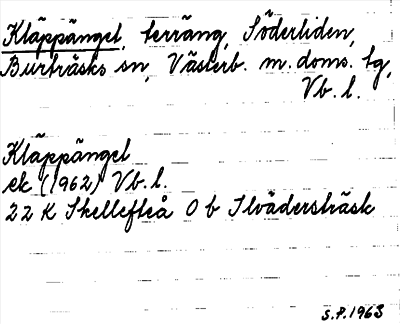 Kläppängel, terräng, Söderliden,
Burträsks sn, Västerb. m. doms. tg,
Vb. l.
Kläppängel
ek (1962) Vb. l.
22 K Skellefteå 0 b Ilvädersträsk
S.P. 1963